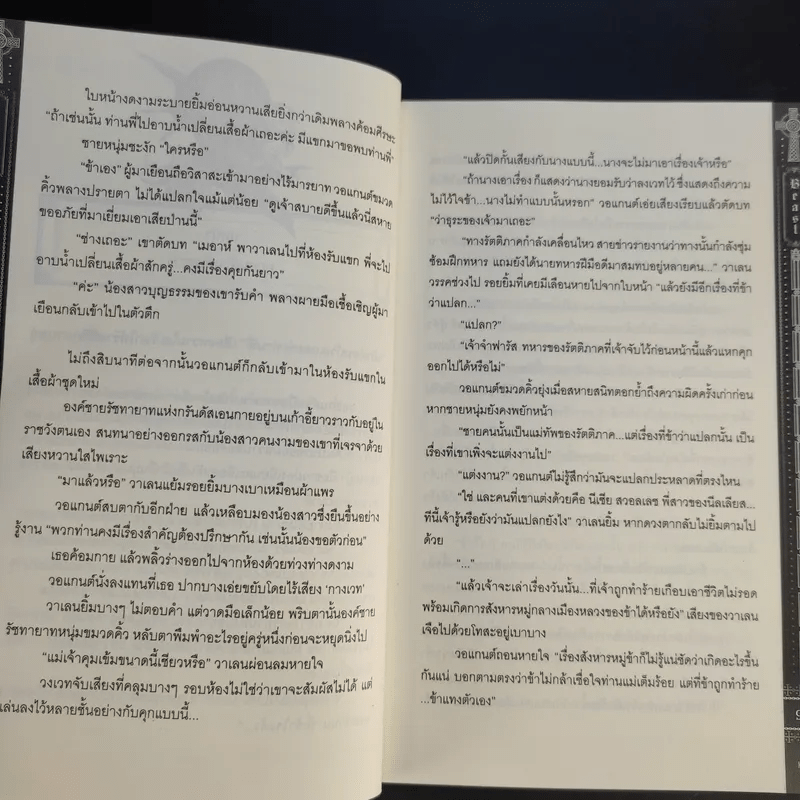 ใบหน้างดงามระบายยิ้มอ่อนหวานเสียยิ่งกว่าเดิมพลางค้อมศีรษะ
“ถ้าเช่นนั้น ท่านพี่ไปอาบน้ำเปลี่ยนเสื้อผ้าเถอะค่ะ มีแขกมาขอพบท่านพี่”
ชายหนุ่มชะงัก “ใครหรือ”
“ข้าเอง” ผู้มาเยือนถือวิสาสะเข้ามาอย่างไร้มารยาท วอแกนต์ขมวด
คิ้วพลางปรายตา ไม่ได้แปลกใจแม้แต่น้อย “ดูเจ้าสบายดีขึ้นแล้วนี่สหาย
ขออภัยที่มาเยี่ยมเอาเสียป่านนี้”
“ช่างเถอะ” เขาตัดบท “เมอาห์ พาวาเลนไปที่ห้องรับแขก พี่จะไป
อาบน้ำเปลี่ยนเสื้อผ้าสักครู่...คงมีเรื่องคุยกันยาว”
“ค่ะ” น้องสาวบุญธรรมของเขารับคำ พลางผายมือเชื้อเชิญผู้มา
เยือนกลับเข้าไปในตัวตึก
ไม่ถึงสิบนาทีต่อจากนั้นวอแกนต์ก็กลับเข้ามาในห้องรับแขกใน
เสื้อผ้าชุดใหม่
องค์ชายรัชทายาทแห่งกรันดัสเอนกายอยู่บนเก้าอี้ยาวราวกับอยู่ใน
ราชวังตนเอง สนทนาอย่างออกรสกับน้องสาวคนงามของเขาที่เจรจาด้วย
เสียงหวานใสไพเราะ
“มาแล้วหรือ” วาเลนแย้มรอยยิ้มบางเบาเหมือนผ้าแพร
วอแกนต์สบตากับอีกฝ่าย แล้วเหลือบมองน้องสาวซึ่งยืนขึ้นอย่าง
รู้งาน “พวกท่านคงมีเรื่องสำคัญต้องปรึกษากัน เช่นนั้นน้องขอตัวก่อน”
เธอค้อมกาย แล้วพลิ้วร่างออกไปจากห้องด้วยท่วงท่างดงาม
วอแกนต์นั่งลงแทนที่เธอ ปากบางเอ่ยขยับโดยไร้เสียง ‘กางเวท’
วาเลนยิ้มบางๆ ไม่ตอบคำ แต่วาดมือเล็กน้อย พริบตานั้นองค์ชาย
รัชทายาทหนุ่มขมวดคิ้ว หลับตาพึมพำอะไรอยู่ครู่หนึ่งก่อนจะหยุดนิ่งไป
“แม่เจ้าคุมเข้มขนาดนี้เชียวหรือ” วาเลนผ่อนลมหายใจ
วงเวทจับเสียงที่คลุมบางๆ รอบห้องไม่ใช่ว่าเขาจะสัมผัสไม่ได้ แต่
เล่นลงไว้หลายชั้นอย่างกับคุกแบบนี้...
“แล้วปิดกั้นเสียงกับนางแบบนี้...นางจะไม่มาเอาเรื่องเจ้าหรือ”
“ถ้านางเอาเรื่อง ก็แสดงว่านางยอมรับว่าลงเวทไว้ ซึ่งแสดงถึงความ
ไม่ไว้ใจข้า...นางไม่ทำแบบนั้นหรอก” วอแกนต์เอ่ยเสียงเรียบแล้วตัดบท
“ว่าธุระของเจ้ามาเถอะ”
“ทางรัตติภาคกำลังเคลื่อนไหว สายข่าวรายงานว่าทางนั้นกำลังซุ่ม
ซ้อมฝึกทหาร แถมยังได้นายทหารฝีมือดีมาสมทบอยู่หลายคน...” วาเลน
วรรคช่วงไป รอยยิ้มที่เคยมีเลือนหายไปจากใบหน้า “แล้วยังมีอีกเรื่องที่ข้า
ว่าแปลก...”
“แปลก?”
“เจ้าจำฟารัส ทหารของรัตติภาคที่เจ้าจับไว้ก่อนหน้านี้แล้วแหกคุก
ออกไปได้หรือไม่”
วอแกนต์ขมวดคิ้วยุ่งเมื่อสหายสนิทตอกย้ำถึงความผิดครั้งเก่าก่อน
หากชายหนุ่มยังคงพยักหน้า
“ชายคนนั้นเป็นแม่ทัพของรัตติภาค...แต่เรื่องที่ข้าว่าแปลกนั้น เป็น
เรื่องที่เขาเพิ่งจะแต่งงานไป”
“แต่งงาน?” วอแกนต์ไม่รู้สึกว่ามันจะแปลกประหลาดที่ตรงไหน
“ใช่ และคนที่เขาแต่งด้วยคือ นีเซีย สวอลเลซ พี่สาวของนีลเลียส...
ทีนี้เจ้ารู้หรือยังว่ามันแปลกยังไง” วาเลนยิ้ม หากดวงตากลับไม่ยิ้มตามไป
ด้วย
“...”
“แล้วเจ้าจะเล่าเรื่องวันนั้น...ที่เจ้าถูกทำร้ายเกือบเอาชีวิตไม่รอด
พร้อมเกิดการสังหารหมู่กลางเมืองหลวงของข้าได้หรือยัง” เสียงของวาเลน
เจือไปด้วยโทสะอยู่เบาบาง
วอแกนต์ถอนหายใจ “เรื่องสังหารหมู่ข้าก็ไม่รู้แน่ชัดว่าเกิดอะไรขึ้น
กันแน่ บอกตามตรงว่าข้าไม่กล้าเชื่อใจท่านแม่เต็มร้อย แต่ที่ข้าถูกทำร้าย
...ข้าแทงตัวเอง”
Beast